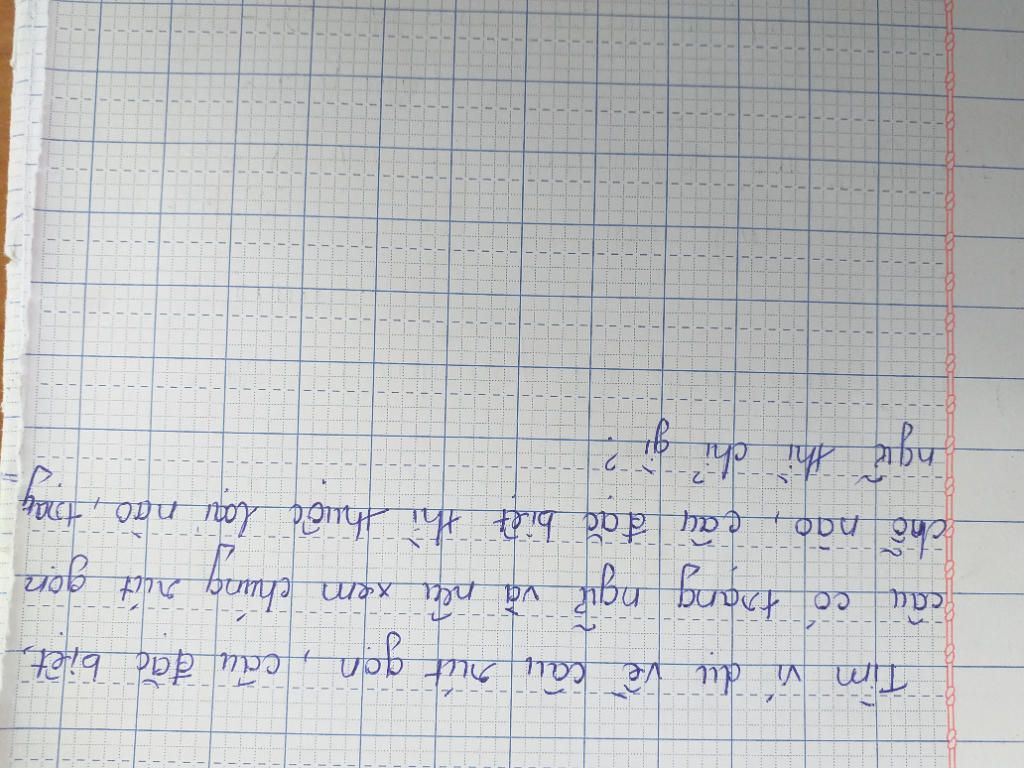 Tìm ví dụ về câu rút gọn, câu đặc biệt,
câu có trạng ngữ và nêu xem chúng rút gọn
chỗ nào, câu đặc biệt thì thuộc loại nào, trạng
ngữ thì chỉ gì?